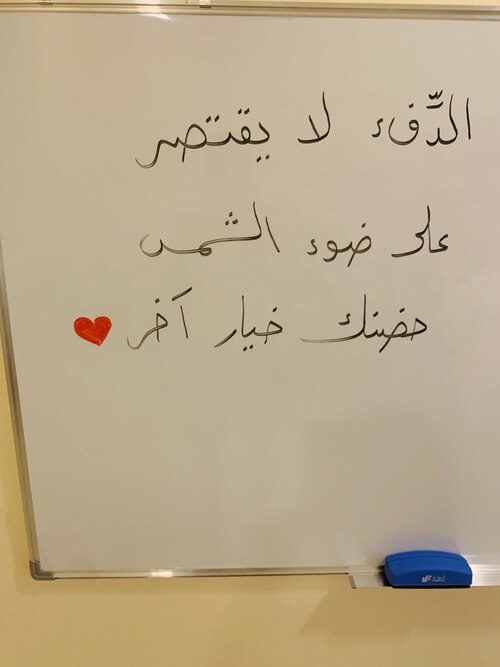 الدِّفء لا يقتصر
على ضوء الشمس
حضنك خيار آخر